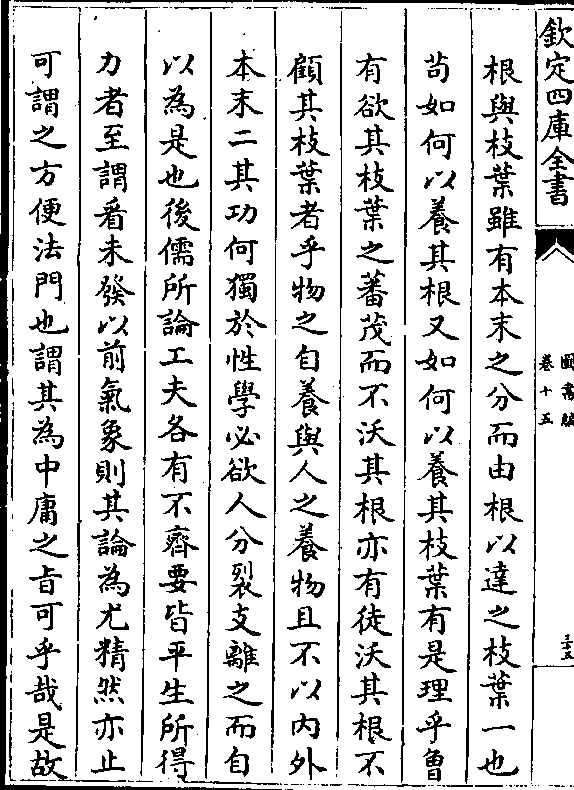 欽定四庫全書
圖書編
卷十五
三十五
根與枝葉雖有本末之分而由根以達之枝葉一也
苟如何以養其根又如何以養其枝葉有是理乎曾
有欲其枝葉之蕃茂而不沃其根亦有徒沃其根不
顧其枝葉者乎物之自養與人之養物且不以内外
本末二其功何獨於性學必欲人分裂支離之而自
以為是也後儒所論工夫各有不齊要皆平生所得
力者至謂看未發以前氣象則其論為尤精然亦止
可謂之方便法門也謂其為中庸之㫖可乎哉是故